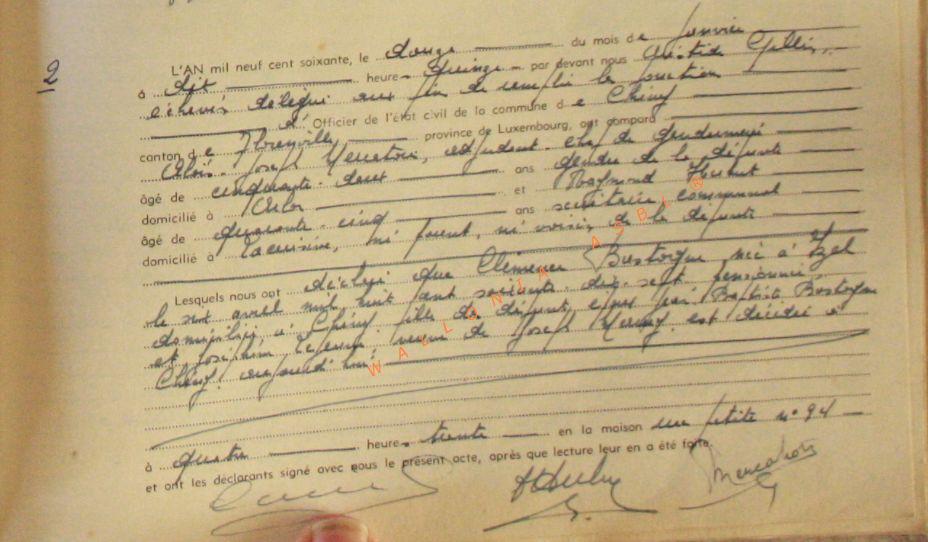 2
L'AN mil neuf cent soixante, le douze du mois de janvier
à dix heures quinze par devant nous
échevin délégué aux fin de remplir la fonction
d' Officier de l'état civil de la commune de Chiny
canton de Florenville province de Luxembourg, ont comparu
Joseph adjudant-chef de gendarmerie
âgé de cinquante-deux ans gendre de la défunte
domicilié à Arlon et Raymond
âgé de quarante-cinq ans secrétaire communal
domicilié à Lacuisine, ni parent, ni voisin, de la défunte
Lesquels nous ont déclaré que Clémence née à Izel
le sept avril mil huit cent soixante-dix-sept pensionnée
domiciliée à Chiny fille de défunts époux Baptiste
et Joséphine veuve de Joseph est décédée à
Chiny aujourd'hui
à quatre heures trente en la maison rue petite n° 94
et ont les déclarants signé avec nous le présent acte, après que lecture leur en a été faite.
WALLONIA ASBL